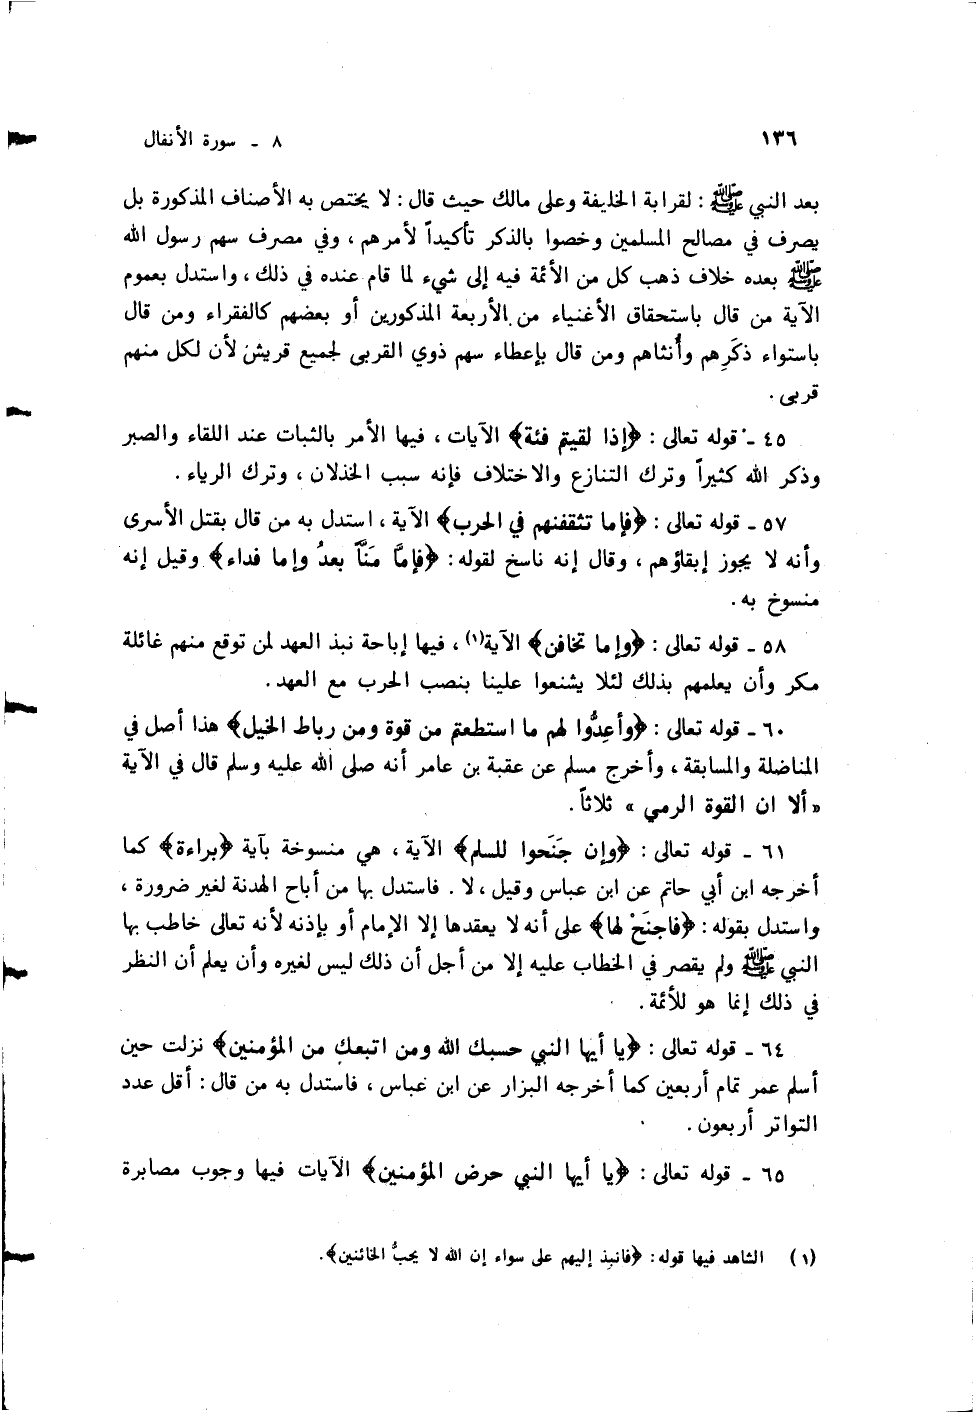 ١٣٦
٨ - سورة الأنفال
بعد النبي ﷺ : لقرابة الخليفة وعلى مالك حيث قال : لا يختص به الأصناف المذكورة بل
يصرف في مصالح المسلمين وخصوا بالذكر تأكيداً لأمرهم ، وفي مصرف سهم رسول الله
ﷺ بعده خلاف ذهب كل من الأئمة فيه إلى شيء لما قام عنده في ذلك ، واستدل بعموم
الآية من قال باستحقاق الأغنياء من الأربعة المذكورين أو بعضهم كالفقراء ومن قال
باستواء ذكَرِهم وأُنثاهم ومن قال بإعطاء سهم ذوي القربى لجميع قريش لأن لكل منهم
قربى .
٤٥ - قوله تعالى : ﴿إذا لقيتم فئة﴾ الآيات ، فيها الأمر بالثبات عند اللقاء والصبر
وذكر الله كثيراً وترك التنازع والاختلاف فإنه سبب الخذلان ، وترك الرياء .
٥٧ - قوله تعالى : ﴿فإما تثقفنهم في الحرب﴾ الآية ، استدل به من قال بقتل الأسرى
وأنه لا يجوز إبقاؤهم ، وقال إنه ناسخ لقوله : ﴿فإمَّا مَنَّاً بعدُ وإما فداء﴾ وقيل إنه
منسوخ به .
٥٨ - قوله تعالى : ﴿وإما تخافن﴾ الآية(١) ، فيها إباحة نبذ العهد لمن توقع منهم غائلة
مكر وأن يعلمهم بذلك لئلا يشنعوا علينا بنصب الحرب مع العهد .
٦٠ - قوله تعالى : ﴿وأعِدُّوا لهم ما استطعتم من قوة ومن رباط الخيل﴾ هذا أصل في
المناضلة والمسابقة ، وأخرج مسلم عن عقبة بن عامر أنه صلى الله عليه وسلم قال في الآية
« ألا ان القوة الرمي » ثلاثاً .
٦١ - قوله تعالى : ﴿وإن جَنَحوا للسلم﴾ الآية ، هي منسوخة بآية ﴿براءة﴾ كما
أخرجه ابن أبي حاتم عن ابن عباس وقيل ، لا . فاستدل بها من أباح الهدنة لغير ضرورة ،
واستدل بقوله : ﴿فاجنَحْ لها﴾ على أنه لا يعقدها إلا الإمام أو بإذنه لأنه تعالى خاطب بها
النبي ﷺ ولم يقصر في الخطاب عليه إلا من أجل أن ذلك ليس لغيره وأن يعلم أن النظر
في ذلك إنما هو للأئمة .
٦٤ - قوله تعالى : ﴿يا أيها النبي حسبك الله ومن اتبعك من المؤمنين﴾ نزلت حين
أسلم عمر تمام أربعين كما أخرجه البزار عن ابن عباس ، فاستدل به من قال : أقل عدد
التواتر أربعون .
٦٥ - قوله تعالى : ﴿يا أيها النبي حرض المؤمنين﴾ الآيات فيها وجوب مصابرة
(١) الشاهد فيها قوله : ﴿فانبذ إليهم على سواء إن الله لا يحبُّ الخائنين﴾ .